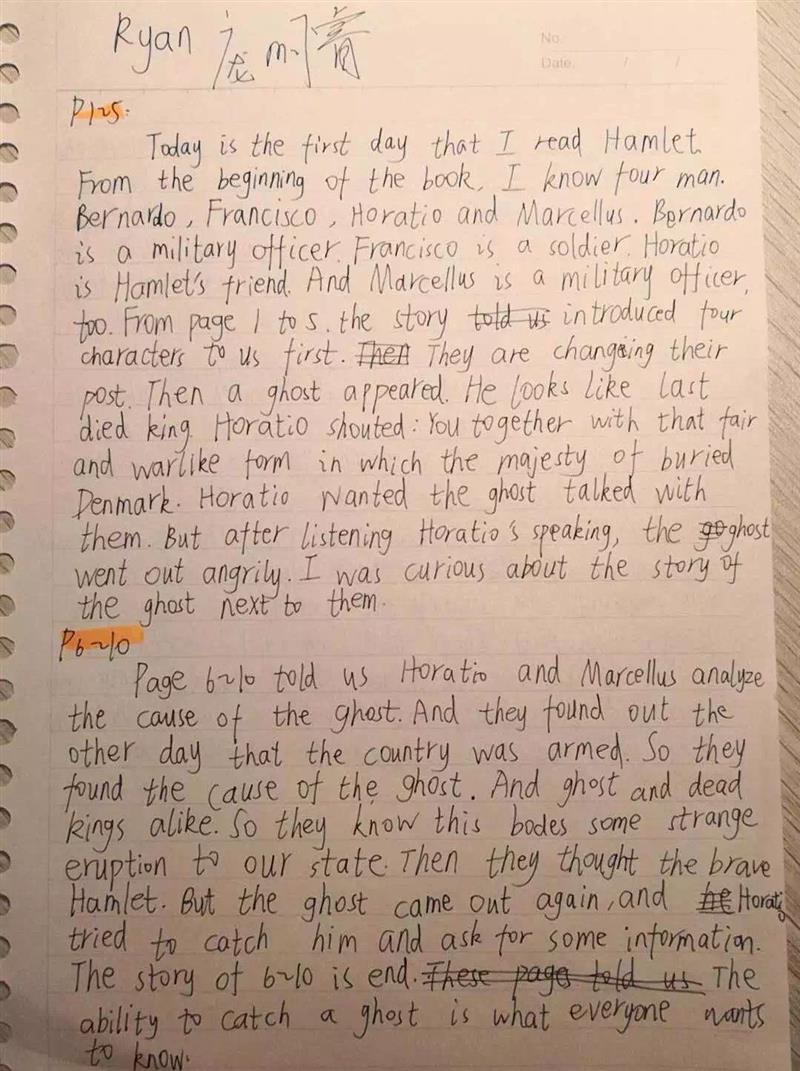 Ryan 庞
No.
Date. / /
P1~5.
Today is the first day that I read Hamlet.
From the beginning of the book, I know four man.
Bernardo, Francisco, Horatio and Marcellus. Bernardo
is a military officer. Francisco is a soldier. Horatio
is Hamlet's friend. And Marcellus is a military officer,
too. From page 1 to 5. the story told us introduced four
characters to us first. Then They are changing their
post. Then a ghost appeared. He looks like last
died king. Horatio shouted: You together with that fair
and warlike form in which the majesty of buried
Denmark. Horatio wanted the ghost talked with
them. But after listening Horatio's speaking, the go ghost
went out angrily. I was curious about the story of
the ghost next to them.
P6~10
Page 6~10 told us Horatio and Marcellus analyze
the cause of the ghost. And they found out the
other day that the country was armed. So they
found the cause of the ghost. And ghost and dead
kings alike. So they know this bodes some strange
eruption to our state. Then they thought the brave
Hamlet. But the ghost came out again, and he Horatio
tried to catch him and ask for some information.
The story of 6~10 is end. These page told us The
ability to catch a ghost is what everyone wants
to know.